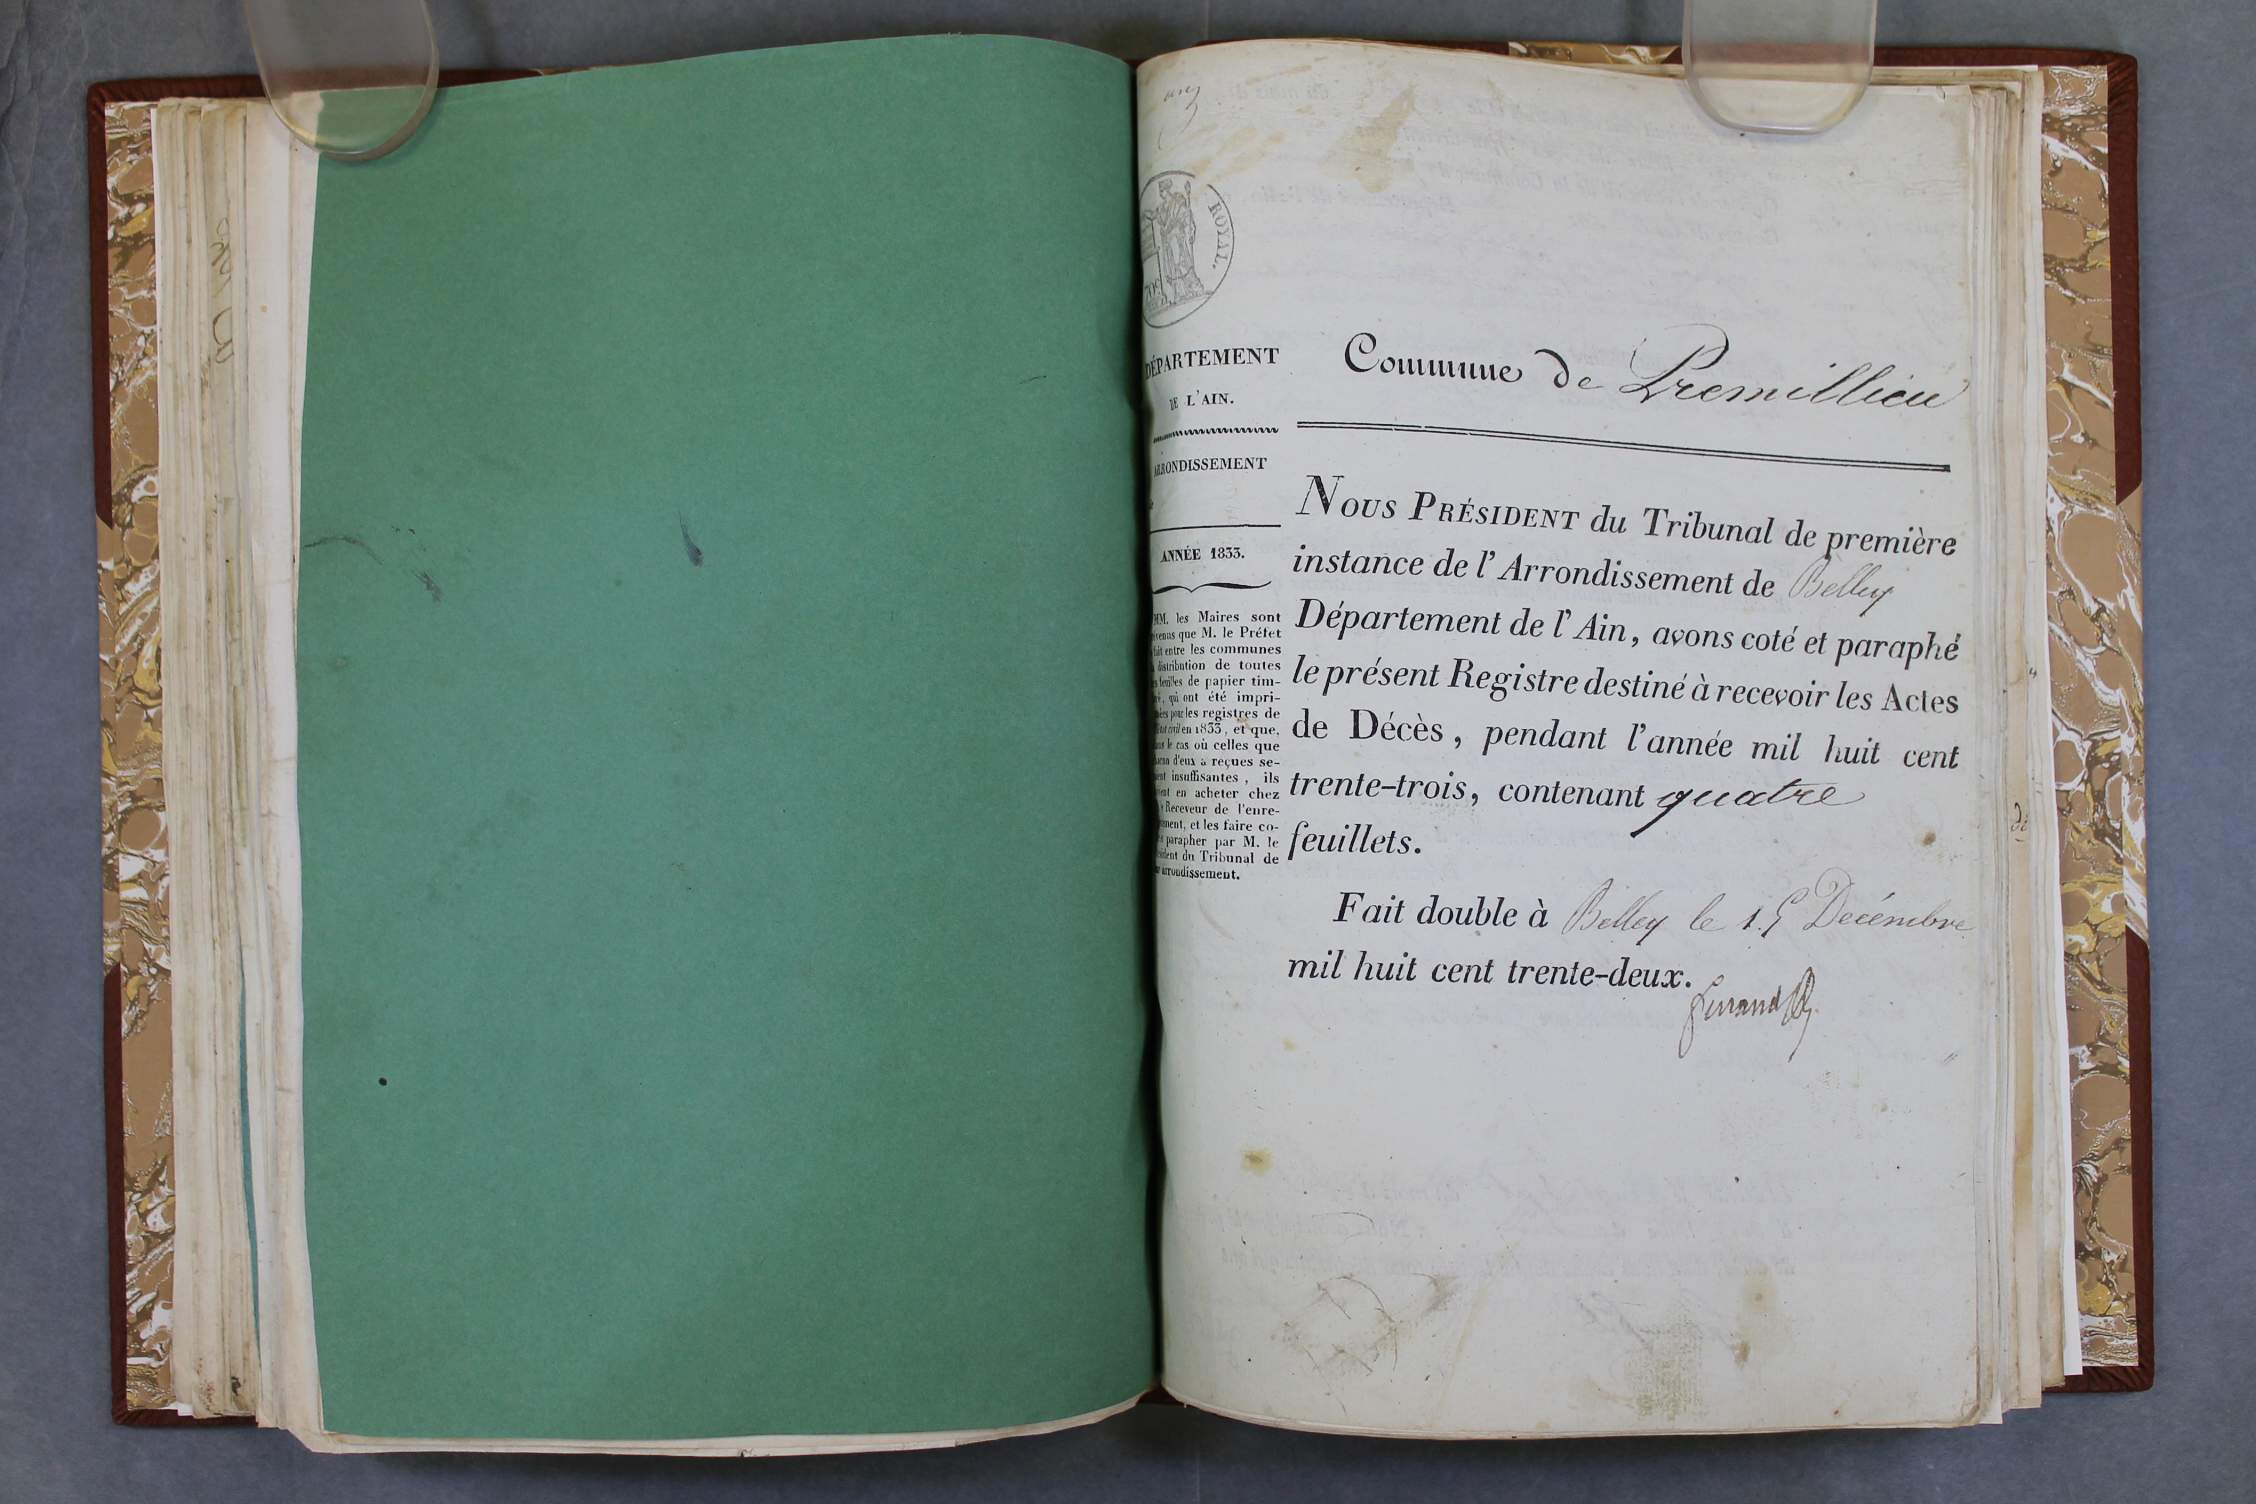 ROYAL.
DÉPARTEMENT
DE L'AIN.
ARRONDISSEMENT
ANNÉE 1833.
MM. les Maires sont
que M. le Préfet
fait entre les communes
distribution de toutes
feuilles de papier tim-
qui ont été impri-
pour les registres de
civil en 1833, et que,
le cas où celles que
d'eux a reçues se-
insuffisantes, ils
en acheter chez
Receveur de l'enre-
et les faire co-
parapher par M. le
du Tribunal de
arrondissement.
Commune de Premillieu
NOUS PRÉSIDENT du Tribunal de première
instance de l'Arrondissement de Belley
Département de l'Ain, avons coté et paraphé
le présent Registre destiné à recevoir les Actes
de Décès, pendant l'année mil huit cent
trente-trois, contenant quatre
feuillets.
Fait double à Belley le 15 Décembre
mil huit cent trente-deux.